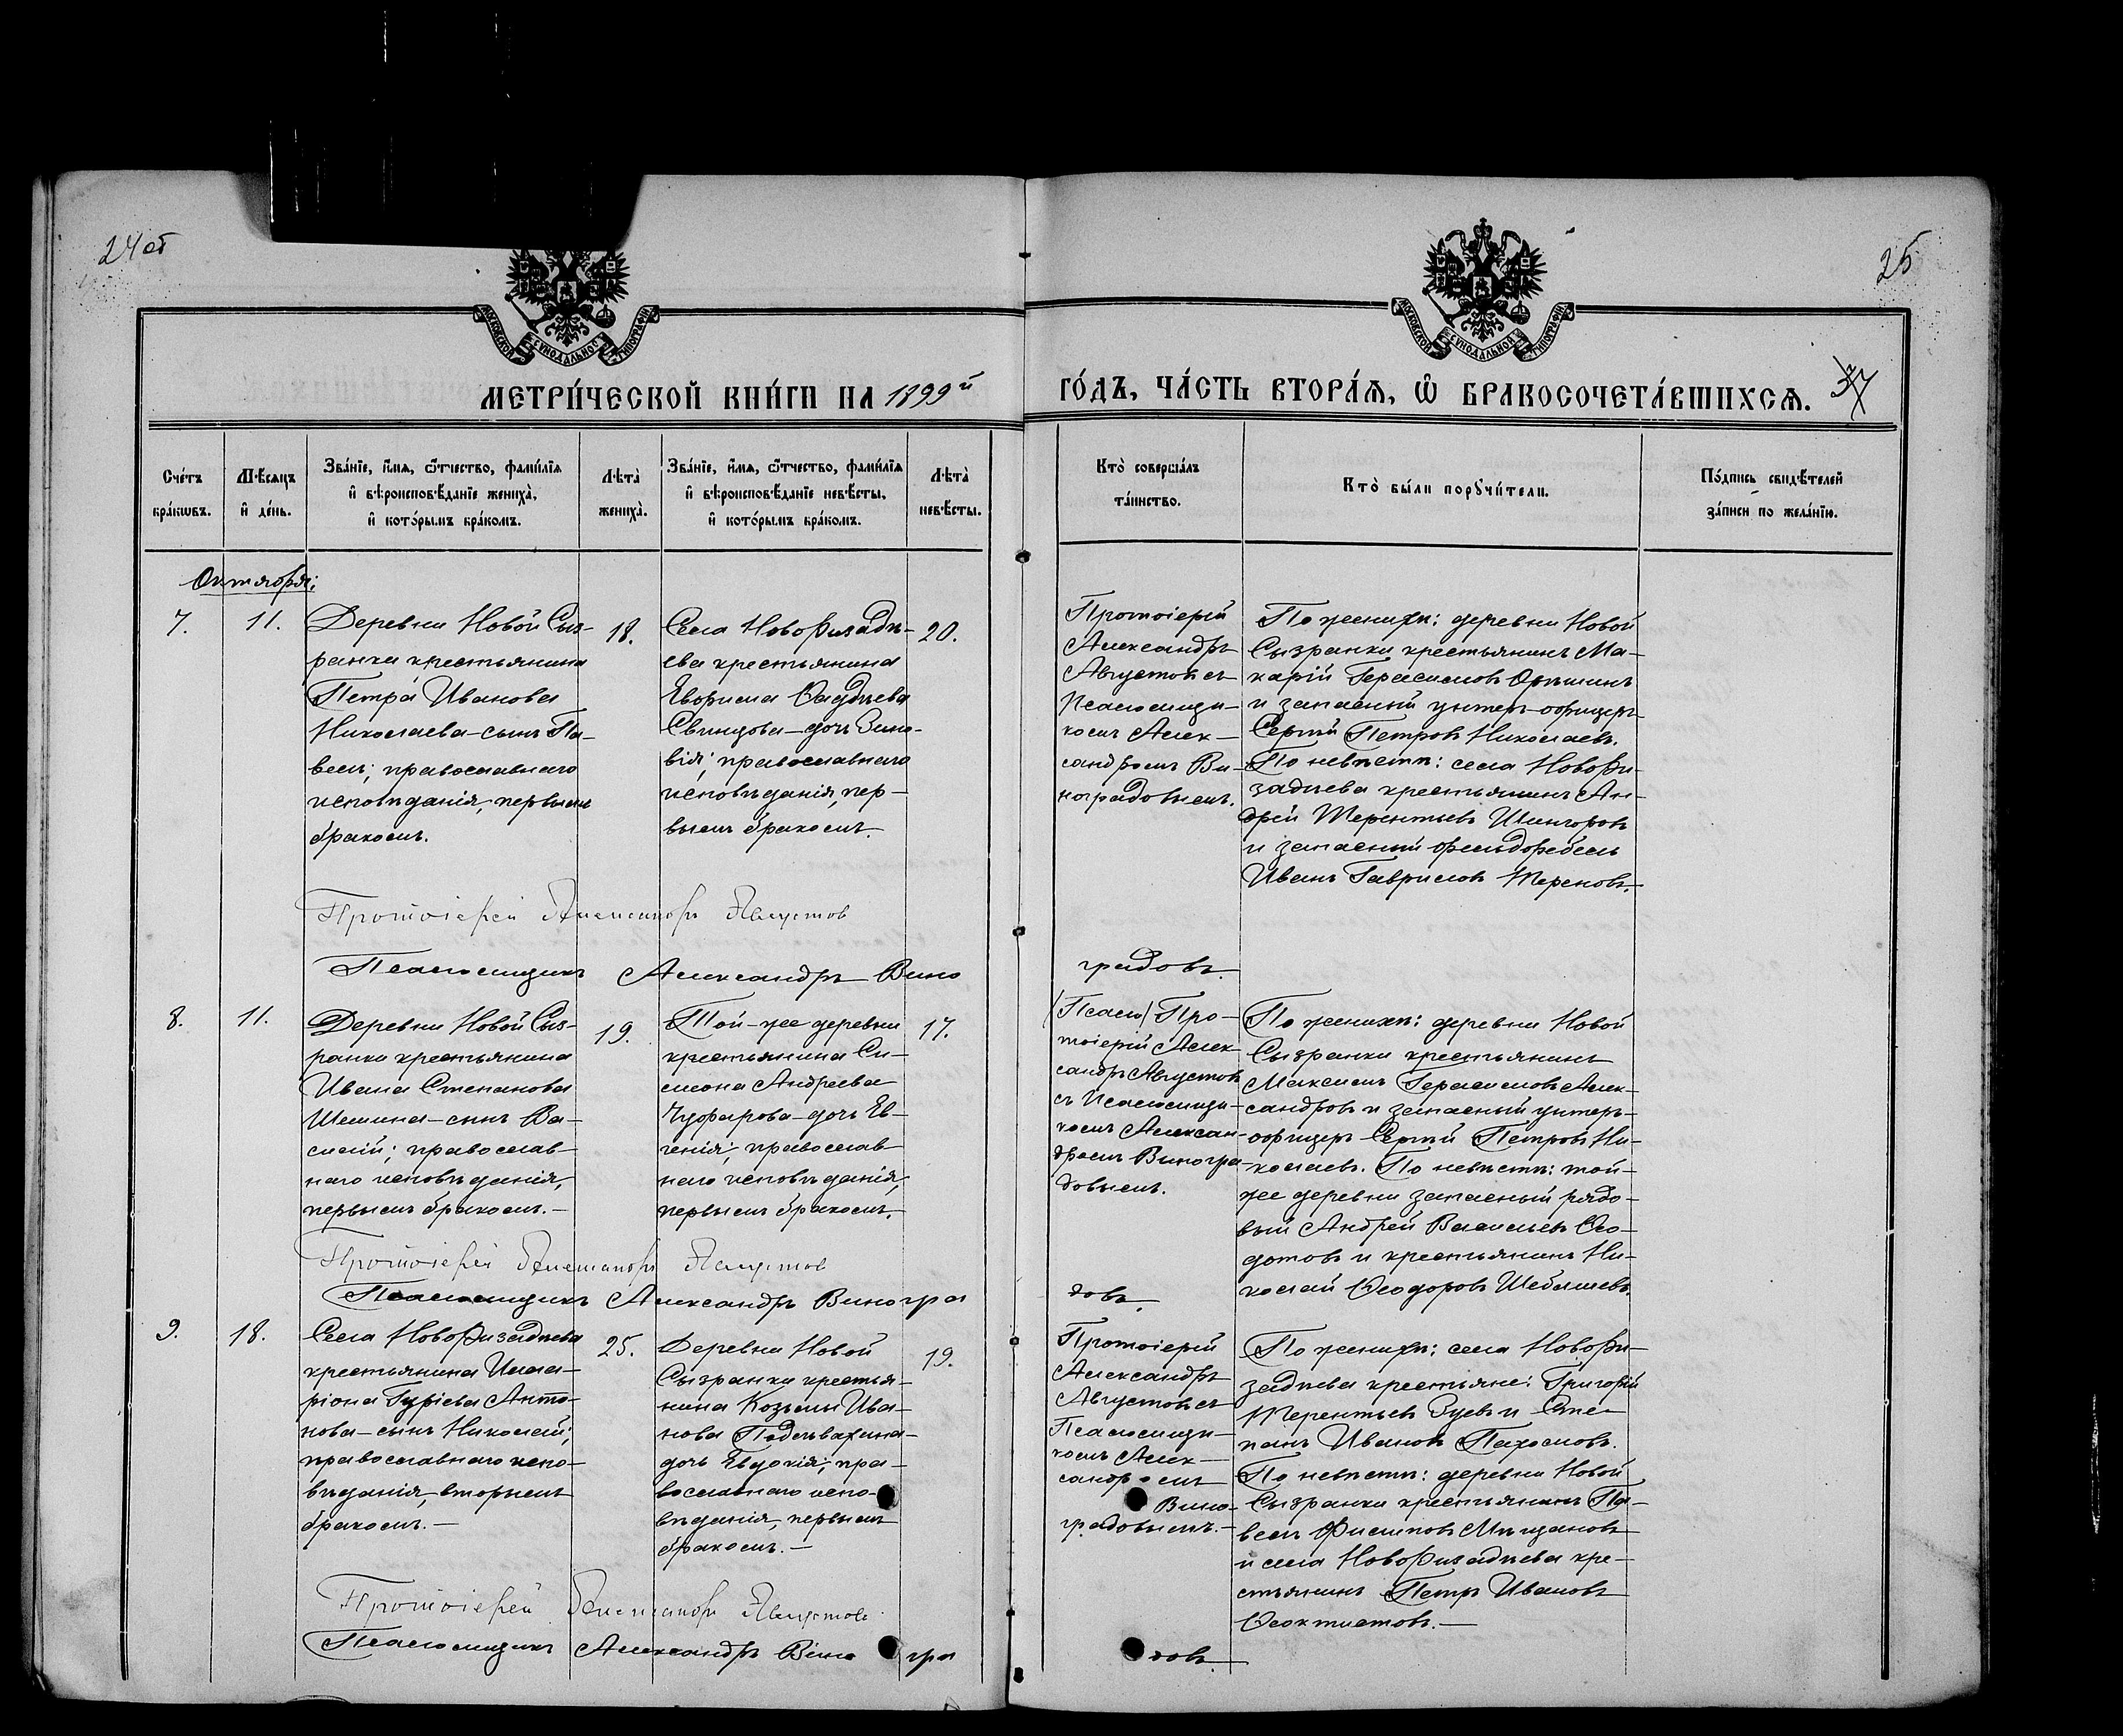 24об
25
МЕТРИ́ЧЕСКОЙ КНИ́ГИ НА 1899й ГО́ДЪ, ЧА́СТЬ ВТОРА́Ѧ, Ѿ БРАКОСОЧЕТА́ВШИХСѦ. 37
Сче́тъ бра́кѡвъ.
Мѣ́сѧцъ и҆ де́нь.
Зва́нїе, и҆́мѧ, ѻ҆́тчество, фами́лїѧ и҆ вѣроисповѣ́данїе жениха̀, и҆ кото́рымъ бра́комъ.
Лѣта̀ жениха̀.
Зва́нїе, и҆́мѧ, ѻ҆́тчество, фами́лїѧ и҆ вѣроисповѣ́данїе невѣ́сты, и҆ кото́рымъ бра́комъ.
Лѣта̀ невѣ́сты.
Кто̀ соверша́лъ та́инство.
Кто̀ бы́ли порꙋчи́тели.
По́дпись свидѣ́телей за́писи по жела́нїю.
Октября:
7.
11.
Деревни Новой Сыз-
ранки крестьянина
Петра Иванова
Николаева - сынъ Па-
велъ; православнаго
исповѣданія, первымъ
бракомъ.
18.
Села Новофизадѣ-
ева крестьянина
Свинцова - дочь Зино-
вія; православнаго
исповѣданія, пер-
вымъ бракомъ.
20.
Протоіерей
Александръ
Августовъ съ
Псаломщи-
комъ Алек-
сандромъ Ви-
ноградовымъ.
По женихѣ: деревни Новой
Сызранки крестьянинъ Ма-
карій Герасимовъ
и запасный унтеръ-офицеръ
Сергѣй Петровъ Николаевъ.
По невѣстѣ: села Новофи-
задѣева крестьянинъ Ан-
дрей Терентьевъ
и запасный фельдфебель
Иванъ Гавриловъ Терековъ.
Протоіерей Александръ Августов
Псаломщикъ Александръ Виноградовъ.
8.
11.
Деревни Новой Сыз-
ранки крестьянина
Ивана Степанова
Шемина - сынъ Ва-
силій; православ-
наго исповѣданія,
первымъ бракомъ. -
19.
Той-же деревни
крестьянина Си-
меона Андреева
Чуфарова - дочь Ев-
генія; православ-
наго исповѣданія,
первымъ бракомъ.
17.
(Псало) Про-
тоіерей Алек-
сандръ Августовъ
съ Псаломщи-
комъ Алексан-
дромъ Виногра-
довымъ.
По женихѣ: деревни Новой
Сызранки крестьянинъ
Максимъ Герасимовъ Алек-
сандровъ и запасный унтеръ-
офицеръ Сергѣй Петровъ Ни-
колаевъ. По невѣстѣ: той-
же деревни запасный рядо-
вый Андрей Васильевъ Ѳео-
дотовъ и крестьянинъ Ни-
колай Ѳеодоровъ Шебашевъ.
Протоіерей Александръ Августов
Псаломщикъ Александръ Виноградовъ.
9.
18.
Села Новофизадѣева
крестьянина Ила-
ріона Гуріева Анто-
нова - сынъ Николай;
православнаго испо-
вѣданія, вторымъ
бракомъ. -
25.
Деревни Новой
Сызранки крестья-
нина Козьмы Ива-
нова Подъ
дочь Евдокія; пра-
вославнаго испо-
вѣданія, первымъ
бракомъ. -
19.
Протоіерей
Александръ
Августовъ съ
Псаломщи-
комъ Алек-
сандромъ
Вино-
градовымъ. -
По женихѣ: села Новофи-
задѣева крестьяне: Григорій
Терентьевъ Зуевъ и Сте-
панъ Ивановъ Пахомовъ.
По невѣстѣ: деревни Новой
Сызранки крестьянинъ Па-
велъ Филиповъ Мѣщановъ
и села Новофизадѣева кре-
стьянинъ Петръ Ивановъ
Ѳеоктистовъ. -
Протоіерей Александръ Августов
Псаломщикъ Александръ Виноградовъ.